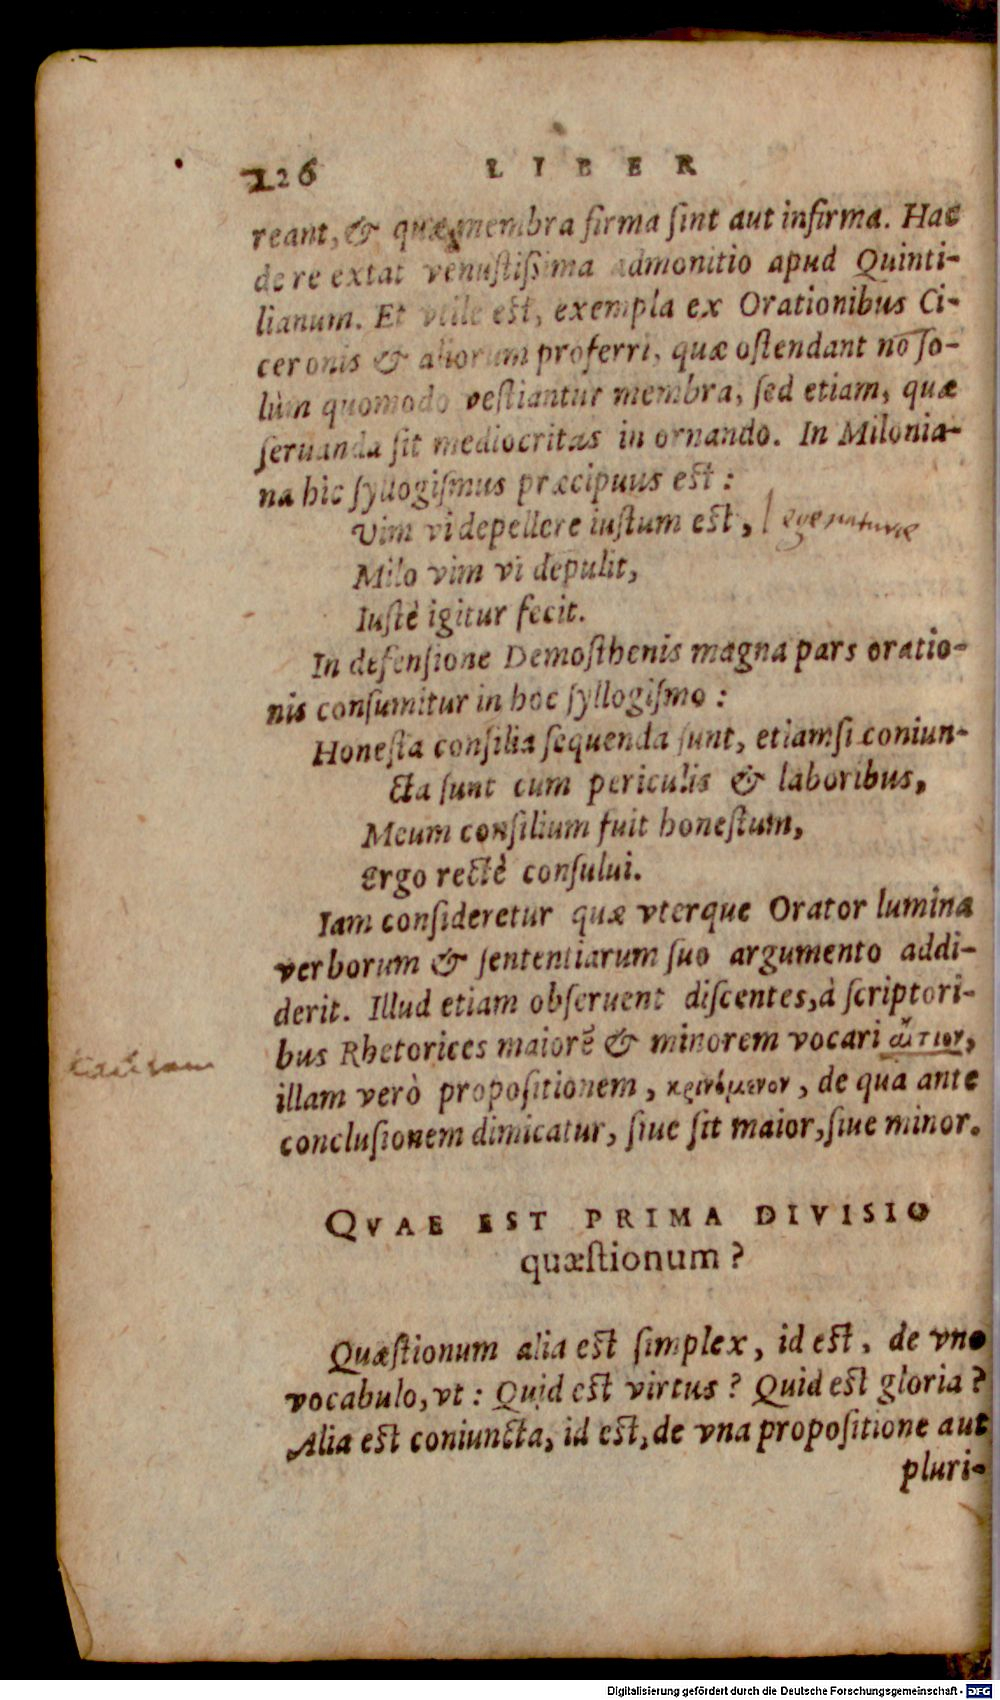 126 LIBER
reant, & quæ membra firma ſint aut infirma. Hac
de re extat venuſtiſsima admonitio apud Quinti-
lianum. Et vtile eſt, exempla ex Orationibus Ci-
ceronis & aliorum proferri, quæ oſtendant nō ſo-
lùm quomodo veſtiantur membra, ſed etiam, quæ
ſeruanda ſit mediocritas in ornando. In Milonia-
na hic ſyllogiſmus præcipuus eſt:
Vim vi depellere iuſtum eſt, lege naturæ
Milo vim vi depulit,
Iuſtè igitur fecit.
In defenſione Demoſthenis magna pars oratio-
nis conſumitur in hoc ſyllogiſmo:
Honeſta conſilia ſequenda ſunt, etiamſi coniun-
cta ſunt cum periculis & laboribus,
Meum conſilium fuit honeſtum,
Ergo rectè conſului.
Iam conſideretur quæ vterque Orator lumina
verborum & ſententiarum ſuo argumento addi-
derit. Illud etiam obſeruent diſcentes, à ſcriptori-
bus Rhetorices maiorē & minorem vocari αἴτιον,
cauſam
illam verò propoſitionem, κρινόμενον, de qua ante
concluſionem dimicatur, ſiue ſit maior, ſiue minor.
QVAE EST PRIMA DIVISIO
quæſtionum?
Quæſtionum alia eſt ſimplex, id eſt, de vno
vocabulo, vt: Quid eſt virtus? Quid eſt gloria?
Alia eſt coniuncta, id eſt, de vna propoſitione aut
pluri-
Digitalisierung gefördert durch die Deutsche Forschungsgemeinschaft - DFG